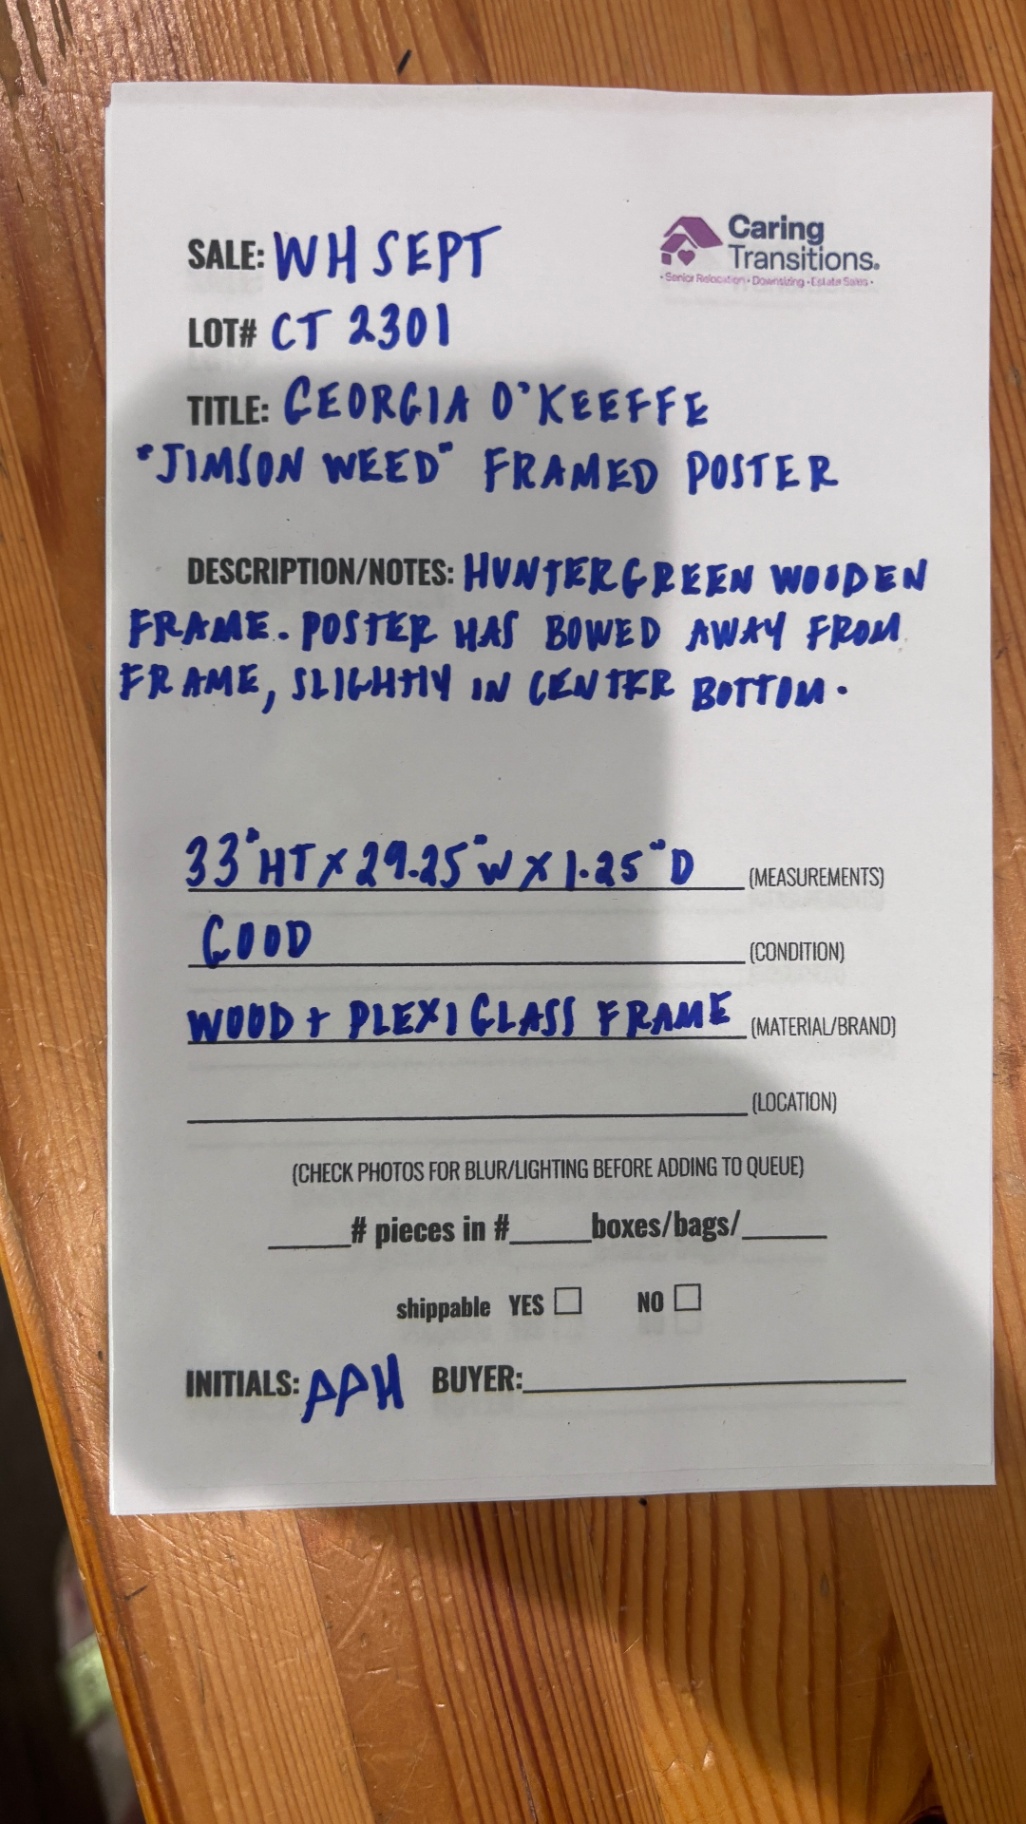 Caring
Transitions.
• Senior Relocation • Downsizing • Estate Sales •
SALE: WH SEPT
LOT# CT 2301
TITLE: GEORGIA O'KEEFFE
"JIMSON WEED" FRAMED POSTER
DESCRIPTION/NOTES: HUNTERGREEN WOODEN
FRAME. POSTER HAS BOWED AWAY FROM
FRAME, SLIGHTLY IN CENTER BOTTOM.
33"HT X 29.25"W X 1.25"D (MEASUREMENTS)
GOOD (CONDITION)
WOOD + PLEXIGLASS FRAME (MATERIAL/BRAND)
(LOCATION)
(CHECK PHOTOS FOR BLUR/LIGHTING BEFORE ADDING TO QUEUE)
# pieces in # boxes/bags/
shippable YES ☐ NO ☐
INITIALS: APH BUYER: